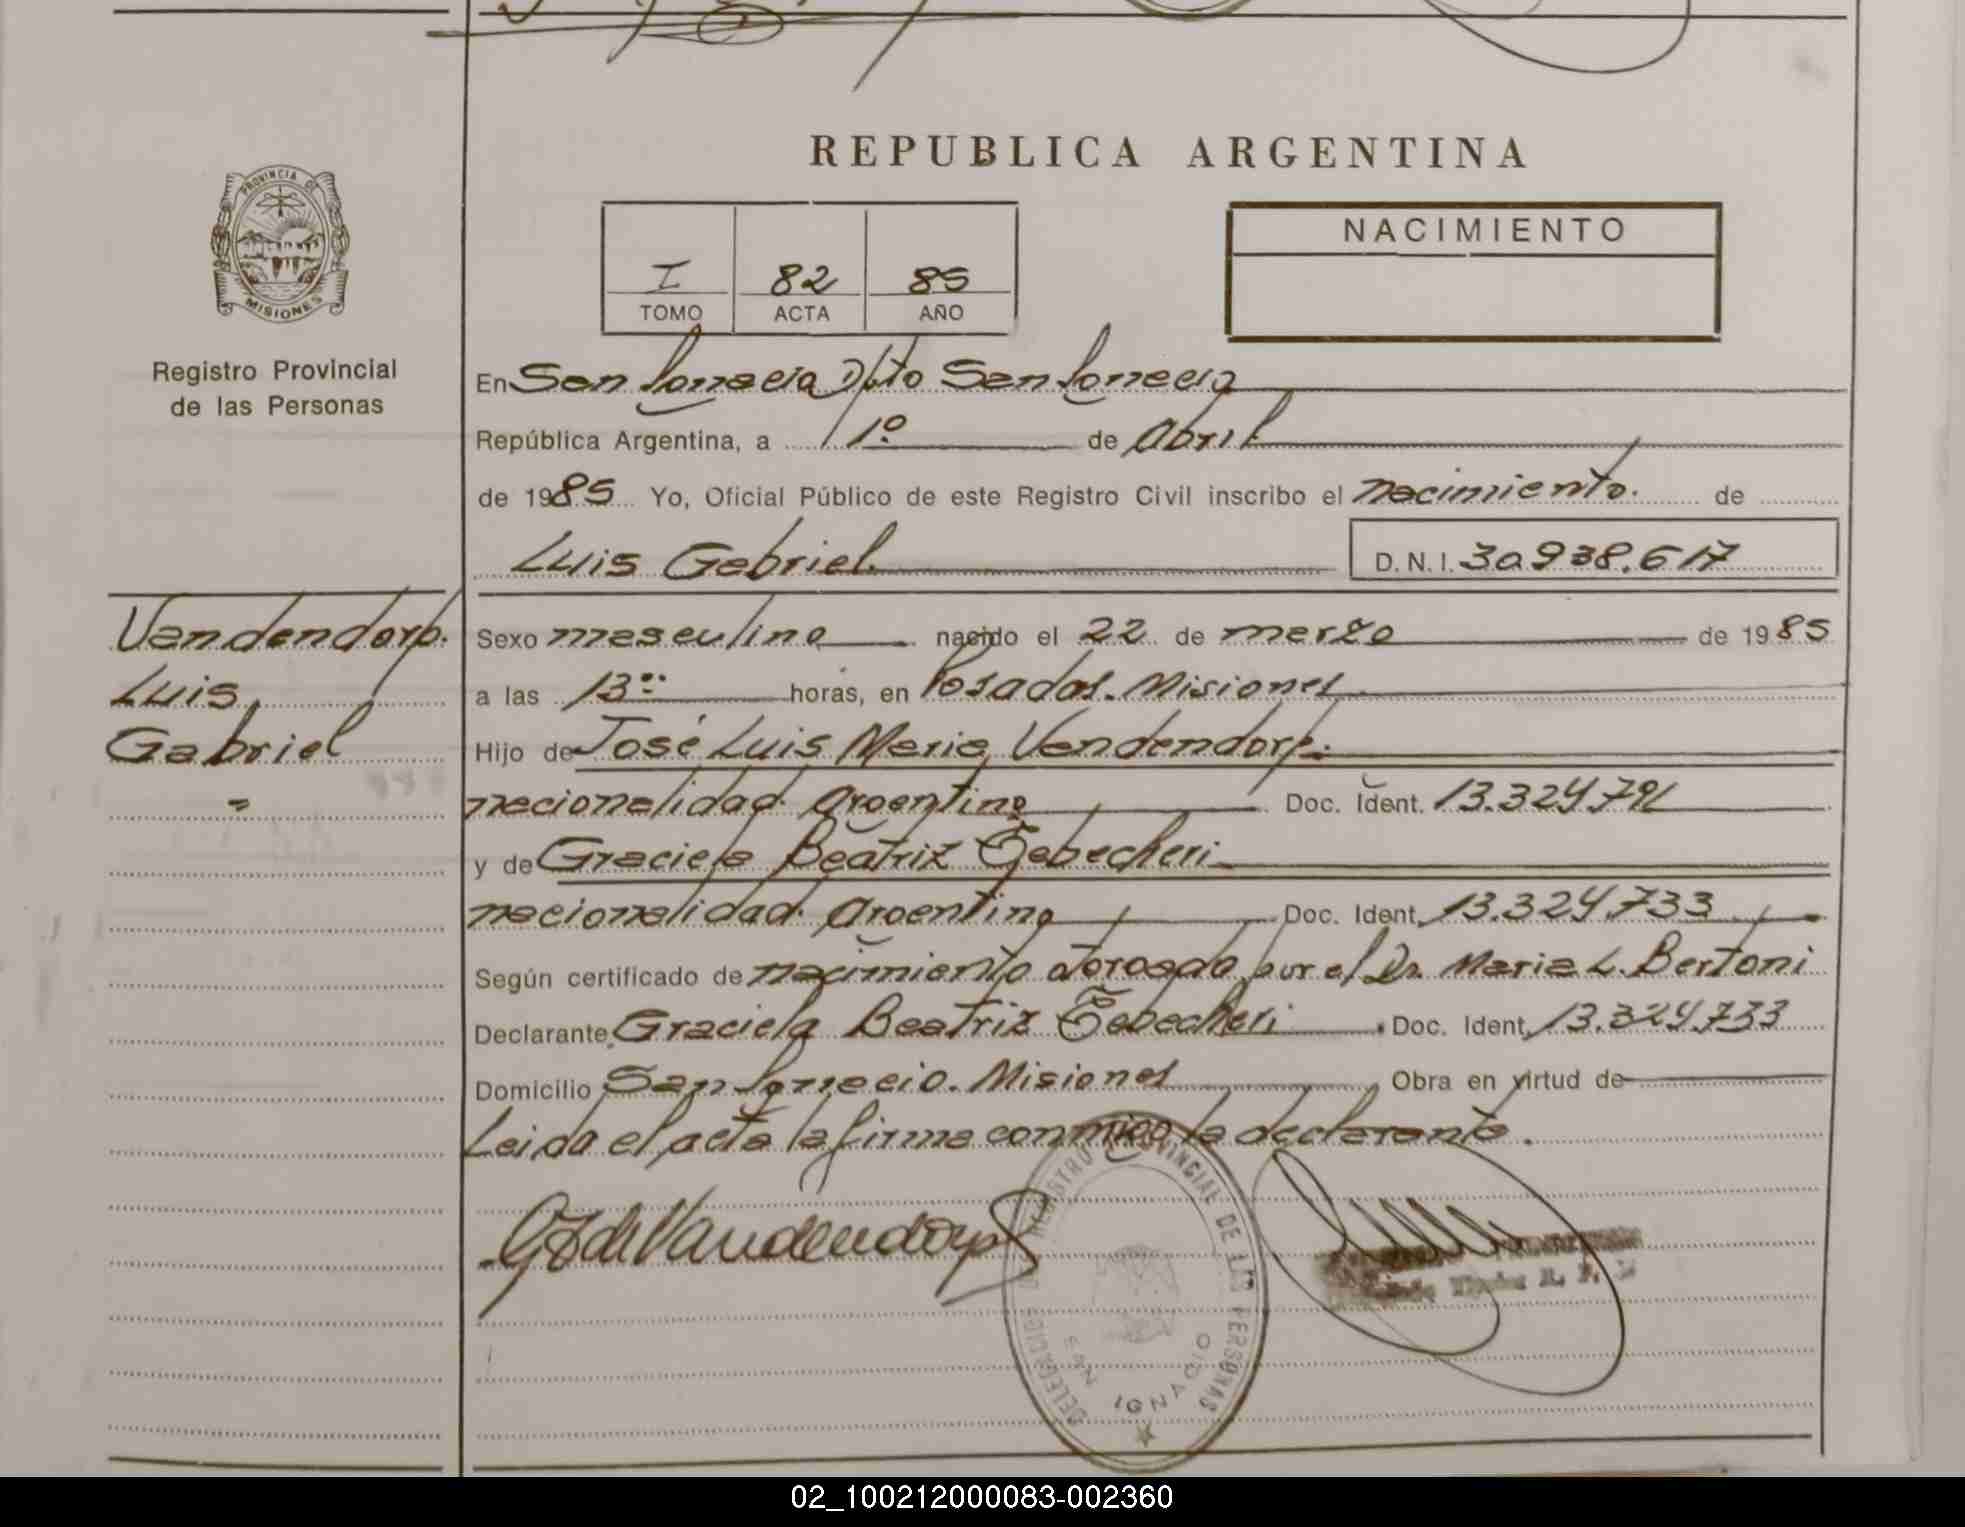 REPUBLICA ARGENTINA
PROVINCIA DE
MISIONES
Registro Provincial
de las Personas
NACIMIENTO
I 82 85
TOMO ACTA AÑO
En San Ignacio Dpto San Ignacio
República Argentina, a 1º de Abril
de 1985 Yo, Oficial Público de este Registro Civil inscribo el nacimiento. de
Luis Gabriel. D.N.I. 30.938.617
Vandendorp.
Luis
Gabriel
Sexo masculino nacido el 22 de marzo de 1985
a las 13 horas, en Posadas. Misiones
Hijo de José Luis Maria Vandendorp.
nacionalidad. Argentina Doc. Ident. 13.324.791
y de Graciela Beatriz Zebecheri
nacionalidad. Argentina Doc. Ident. 13.324.733
Según certificado de nacimiento otorgado por el Dr. Maria L. Bertoni
Declarante Graciela Beatriz Zebecheri Doc. Ident. 13.324.733
Domicilio San Ignacio. Misiones Obra en virtud de
Leida el acta la firma conmigo la declarante.
DELEGACION REGISTRO PROVINCIAL DE LAS PERSONAS
SAN IGNACIO
02_100212000083-002360